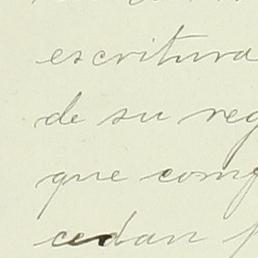 escritura
de su reg
que comp
cedan